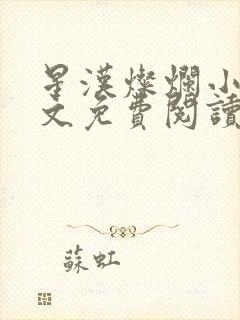 星漢燦爛小
文免費閱讀
蘇虹